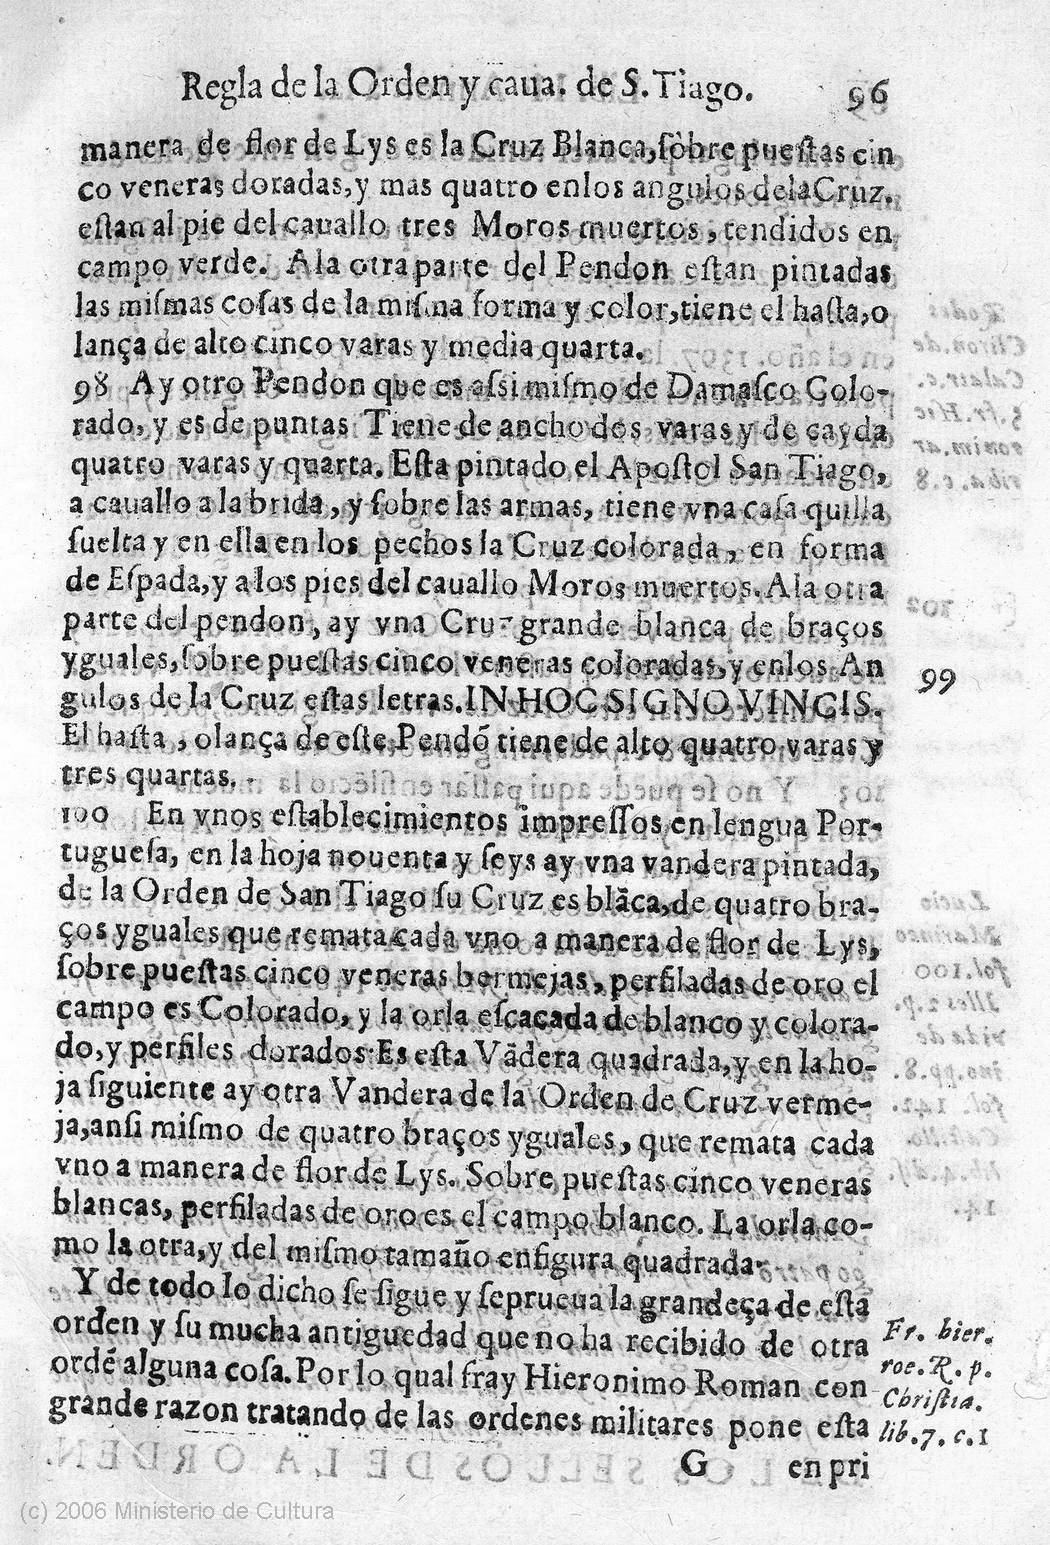 Regla de la Orden y caua. de S. Tiago. 96
manera de flor de Lys es la Cruz Blanca, sobre puestas cin
co veneras doradas, y mas quatro enlos angulos dela Cruz.
estan al pie del cauallo tres Moros muertos, tendidos en
campo verde. A la otra parte del Pendon estan pintadas
las mismas cosas de la misma forma y color, tiene el hasta, o
lança de alto cinco varas y media quarta.
98 Ay otro Pendon que es assi mismo de Damasco Colo-
rado, y es de puntas Tiene de ancho dos varas y de cayda
quatro varas y quarta. Esta pintado el Apostol San Tiago,
a cauallo a la brida, y sobre las armas, tiene vna casaquilla
suelta y en ella en los pechos la Cruz colorada, en forma
de Espada, y a los pies del cauallo Moros muertos. A la otra
parte del pendon, ay vna Cruz grande blanca de braços
yguales, sobre puestas cinco veneras coloradas, y enlos An
99
gulos de la Cruz estas letras. IN HOC SIGNO VINCIS.
El hasta, o lança de este Pendõ tiene de alto quatro varas y
tres quartas.
100 En vnos establecimientos impressos en lengua Por-
tuguesa, en la hoja nouenta y seys ay vna vandera pintada,
de la Orden de San Tiago su Cruz es blãca, de quatro bra-
ços yguales que remata cada vno a manera de flor de Lys,
sobre puestas cinco veneras bermejas, perfiladas de oro el
campo es Colorado, y la orla escacada de blanco y colora-
do, y perfiles dorados Es esta Vãdera quadrada, y en la ho-
ja siguiente ay otra Vandera de la Orden de Cruz verme-
ja, ansi mismo de quatro braços yguales, que remata cada
vno a manera de flor de Lys. Sobre puestas cinco veneras
blancas, perfiladas de oro es el campo blanco. La orla co-
mo la otra, y del mismo tamaño en figura quadrada.
Y de todo lo dicho se sigue y seprueua la grandeça de esta
orden y su mucha antiguedad que no ha recibido de otra
ordẽ alguna cosa. Por lo qual fray Hieronimo Roman con
grande razon tratando de las ordenes militares pone esta
Fr. hier.
roe. R. p.
Christia.
lib. 7. c. 1
G en pri
(c) 2006 Ministerio de Cultura